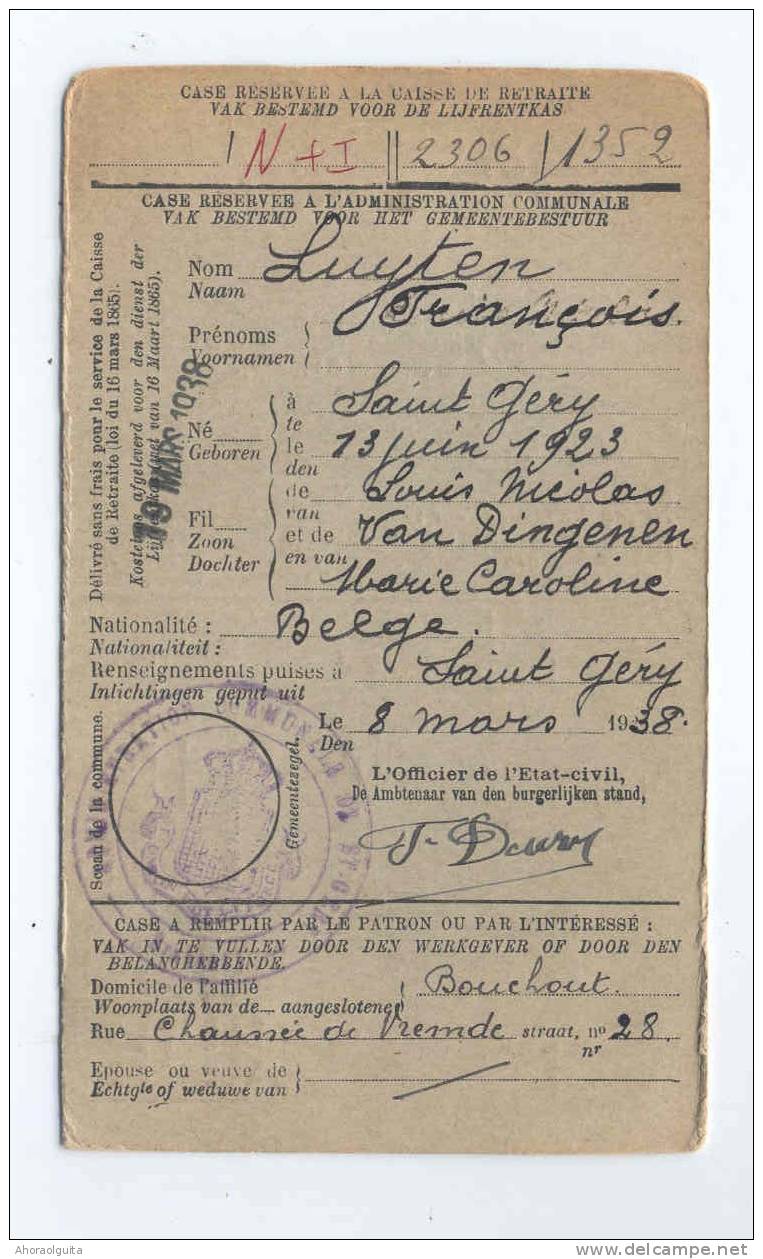 CASE RÉSERVÉE A LA CAISSE DE RETRAITE
VAK BESTEMD VOOR DE LIJFRENTKAS
N + I 2306 1352
CASE RÉSERVÉE A L'ADMINISTRATION COMMUNALE
VAK BESTEMD VOOR HET GEMEENTEBESTUUR
Délivré sans frais pour le service de la Caisse
de Retraite (loi du 16 mars 1865).
Kosteloos afgeleverd voor den dienst der
van 16 Maart 1865).
MARS 1938
Nom Luyten
Naam
François.
Prénoms
Voornamen
à Saint Géry
te
Né
Geboren
le 13 juin 1923
den
de Louis Nicolas
van
Fil
Zoon
Dochter
et de Van Dingenen
en van
Marie Caroline
Nationalité : Belge.
Nationaliteit :
Renseignements puisés à Saint Géry
Inlichtingen geput uit
Le 8 mars 1938.
Den
Sceau de la commune.
Gemeentezegel.
L'Officier de l'Etat-civil,
De Ambtenaar van den burgerlijken stand,
CASE A REMPLIR PAR LE PATRON OU PAR L'INTÉRESSÉ :
VAK IN TE VULLEN DOOR DEN WERKGEVER OF DOOR DEN
BELANGHEBBENDE.
Domicile de l'affilié Bouchout.
Woonplaats van de aangeslotene
Rue Chaussée de Vremde straat, no 28.
nr
Epouse ou veuve de
Echtgte of weduwe van
Ahoraolguita
www.delcampe.net